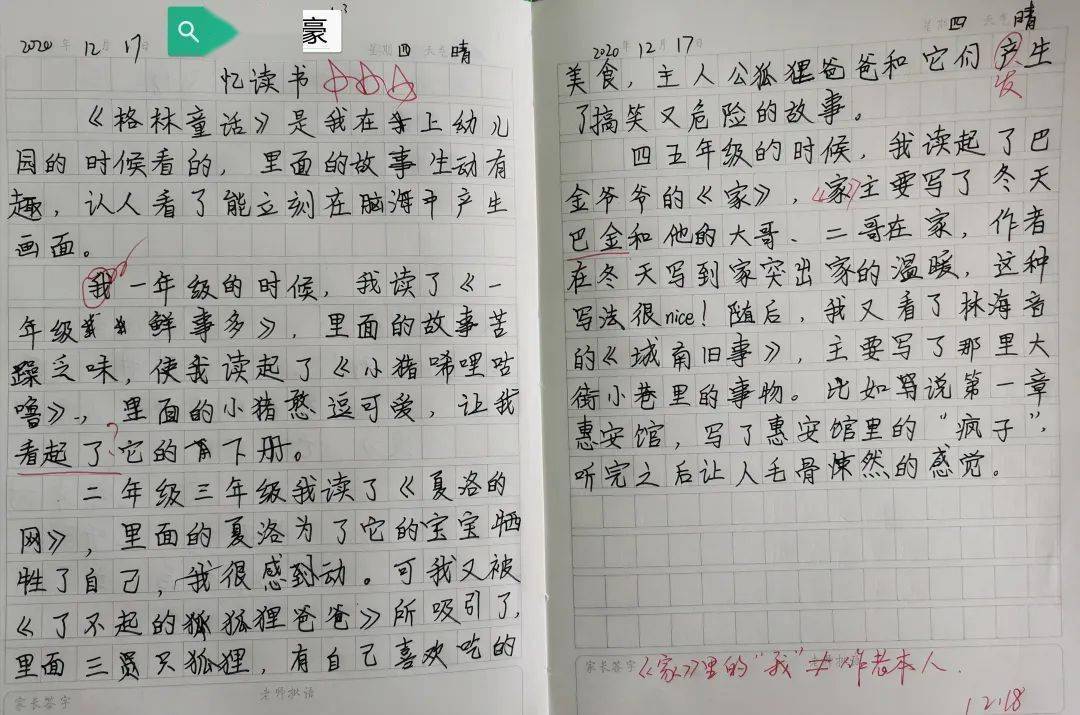 豪
2020年12月17日 星期四 天气晴
忆读书
《格林童话》是我在上幼儿
园的时候看的，里面的故事生动有
趣，认人看了能立刻在脑海中产生
画面。
我一年级的时候，我读了《一
年级鲜事多》，里面的故事苦
躁乏味，使我读起了《小猪唏哩咕
噜》，里面的小猪憨逗可爱，让我
看起了?它的下册。
二年级三年级我读了《夏洛的
网》，里面的夏洛为了它的宝宝牺
牲了自己，我很感到动。可我又被
《了不起的狐狸爸爸》所吸引了，
里面三只狐狸，有自己喜欢吃的
家长签字
老师批语
2020年12月17日 星期四 天气晴
美食，主人公狐狸爸爸和它们产生
发
了搞笑又危险的故事。
四五年级的时候，我读起了巴
金爷爷的《家》，《家》主要写了冬天
巴金和他的大哥、二哥在家，作者
在冬天写到家突出家的温暖，这种
写法很nice！随后，我又看了林海音
的《城南旧事》，主要写了那里大
街小巷里的事物。比如骂说第一章
惠安馆，写了惠安馆里的“疯子”，
听完之后让人毛骨悚然的感觉。
家长签字
《家》里的“我”≠作者本人.
12.18